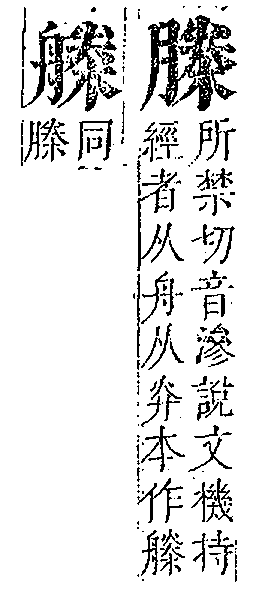 榺
所禁切音滲說文機持
經者从舟从灷本作
同
榺